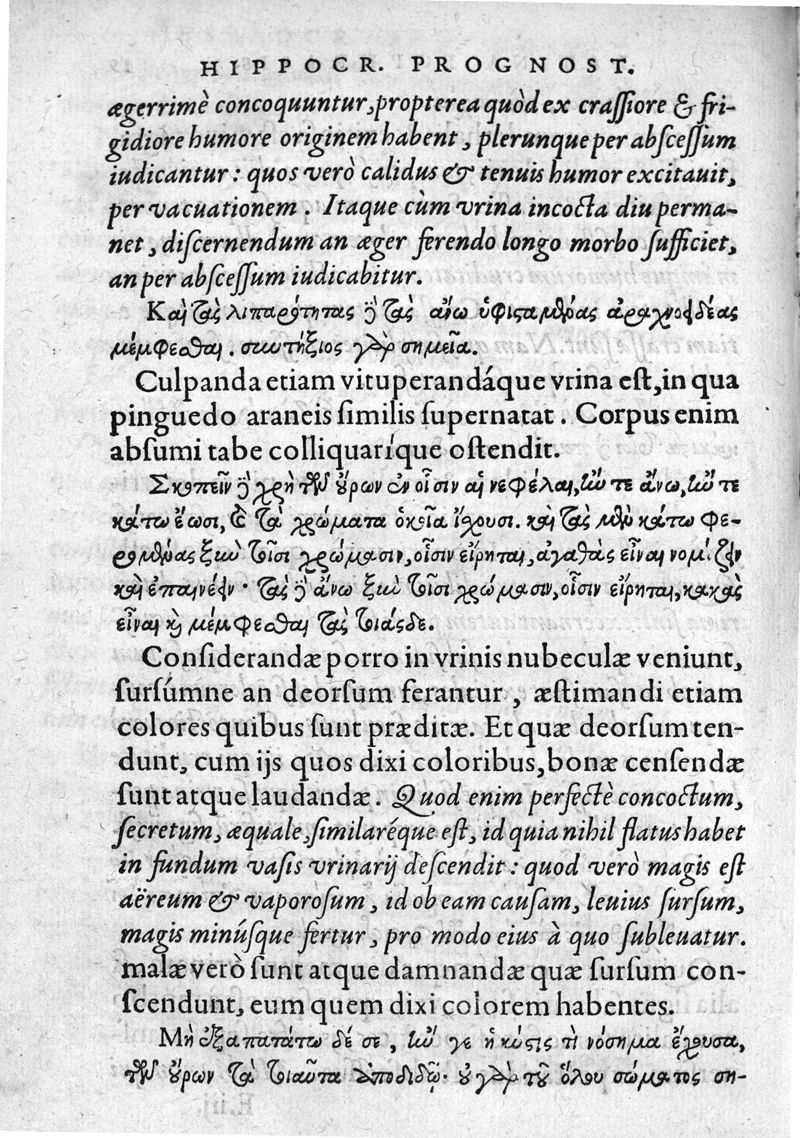 HIPPOCR. PROGNOST.
ægerrimè concoquuntur, propterea quòd ex craſſiore & fri-
gidiore humore originem habent, plerunque per abſceſſum
iudicantur: quos verò calidus & tenuis humor excitauit,
per vacuationem. Itaque cùm vrina incocta diu perma-
net, diſcernendum an æger ferendo longo morbo ſufficiet,
an per abſceſſum iudicabitur.
Καὶ τὰς λιπαρότητας δὲ τὰς ἄνω ὑφισταμένας ἀραχνοειδέας
μέμφεσθαι. συντήξιος γὰρ σημεῖα.
Culpanda etiam vituperandáque vrina eſt, in qua
pinguedo araneis ſimilis ſupernatat. Corpus enim
abſumi tabe colliquaríque oſtendit.
Σκοπεῖν δὲ χρὴ τῶν οὔρων ἐν οἷσιν αἱ νεφέλαι, ἤν τε ἄνω, ἤν τε
κάτω ἔωσι, καὶ τὰ χρώματα ὁκοῖα ἴχουσι. καὶ τὰς μὲν κάτω φε-
ρομένας ξὺν τοῖσι χρώμασιν, οἷσιν εἴρηται, ἀγαθὰς εἶναι νομίζειν
καὶ ἐπαινέειν· τὰς δὲ ἄνω ξὺν τοῖσι χρώμασιν, οἷσιν εἴρηται, κακὰς
εἶναι καὶ μέμφεσθαι τὰς τοιάσδε.
Conſiderandæ porro in vrinis nubeculæ veniunt,
ſurſúmne an deorſum ferantur, æſtimandi etiam
colores quibus ſunt præditæ. Et quæ deorſum ten-
dunt, cum ijs quos dixi coloribus, bonæ cenſendæ
ſunt atque laudandæ. Quod enim perfectè concoctum,
ſecretum, æquale, ſimilaréque eſt, id quia nihil flatus habet
in fundum vaſis vrinarij deſcendit: quod verò magis eſt
aëreum & vaporoſum, id ob eam cauſam, leuius ſurſum,
magis minúſque fertur, pro modo eius à quo ſubleuatur.
malæ verò ſunt atque damnandæ quæ ſurſum con-
ſcendunt, eum quem dixi colorem habentes.
Μὴ ἐξαπατάτω δέ σε, ἤν γε ἡ κύστις τὶ νόσημα ἔχουσα,
τῶν οὔρων τὰ τοιαῦτα ἀποδιδῷ· οὐ γὰρ τοῦ ὅλου σώματος ση-